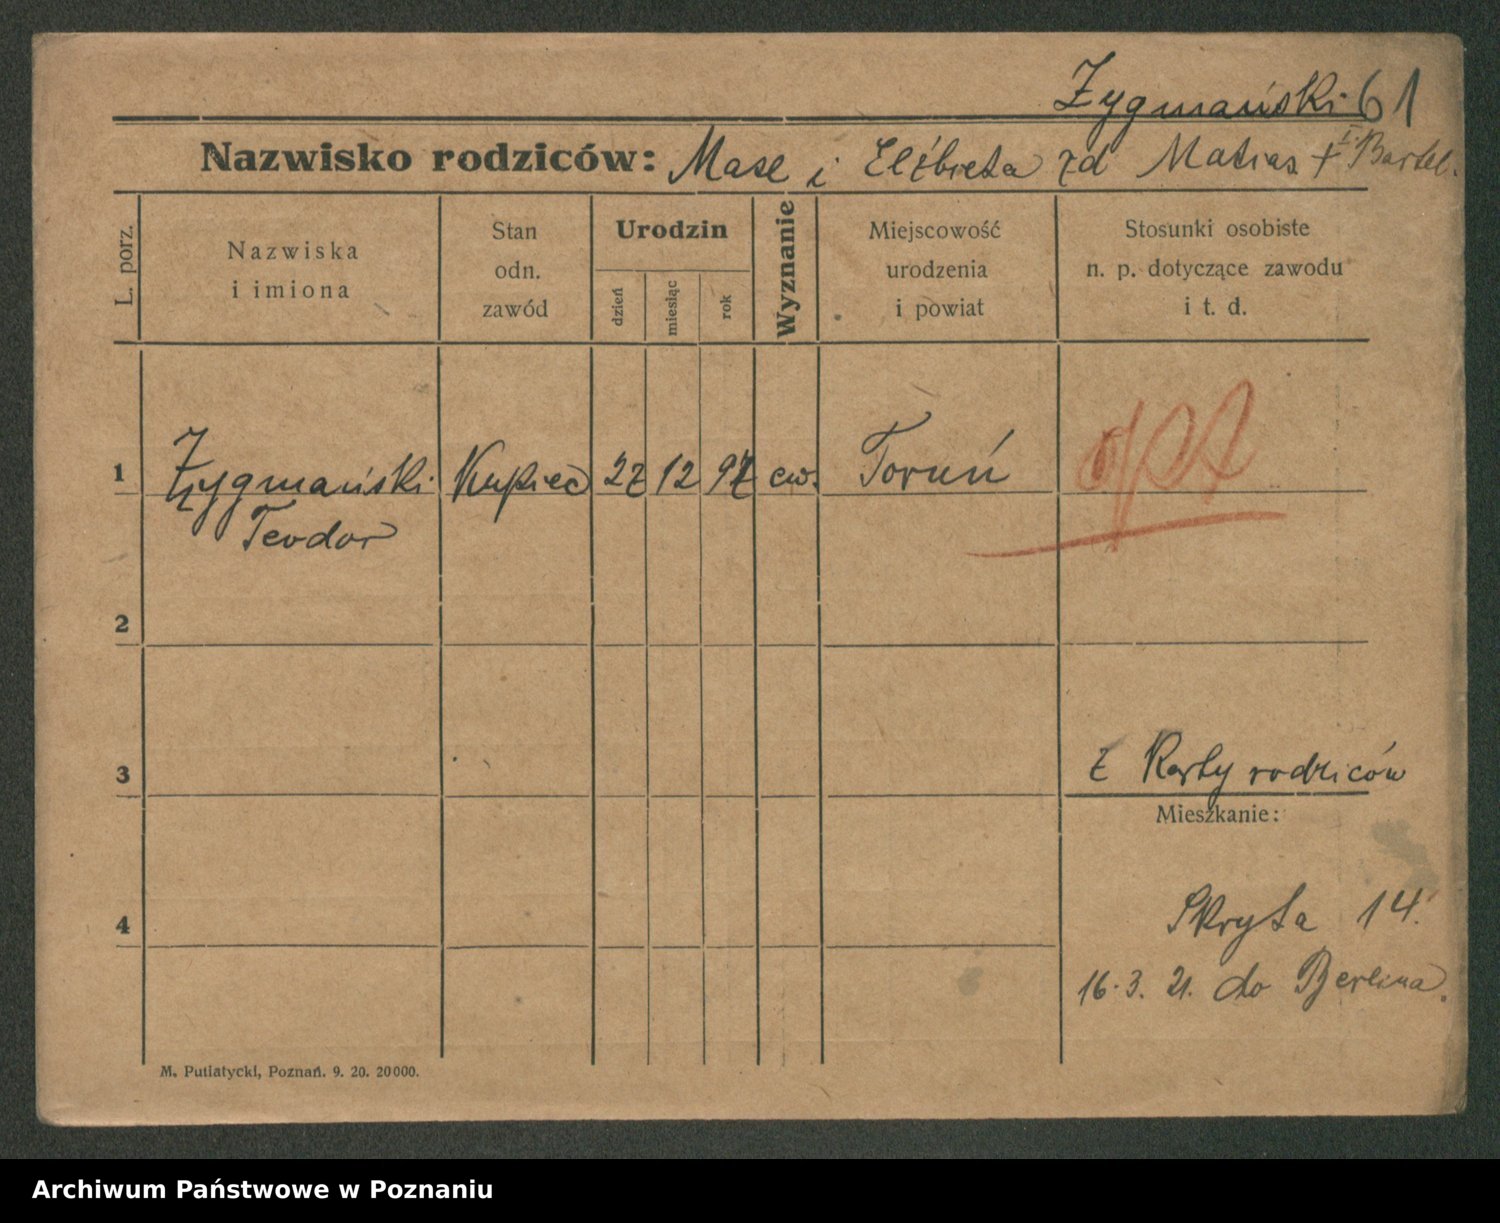 Zygmański 61
Nazwisko rodziców: Masl i Elżbieta zd Matias + Bartel.
L. porz.
Nazwiska
i imiona
Stan
odn.
zawód
Urodzin
dzień
miesiąc
rok
Wyznanie
Miejscowość
urodzenia
i powiat
Stosunki osobiste
n. p. dotyczące zawodu
i t. d.
1 Zygmański Kupiec 27 12 97 ew. Toruń opt
Teodor
2
3
z Karty rodziców
Mieszkanie:
4
Skryta 14.
16.3.21. do Berlina.
M. Putiatycki, Poznań. 9. 20. 20000.
Archiwum Państwowe w Poznaniu